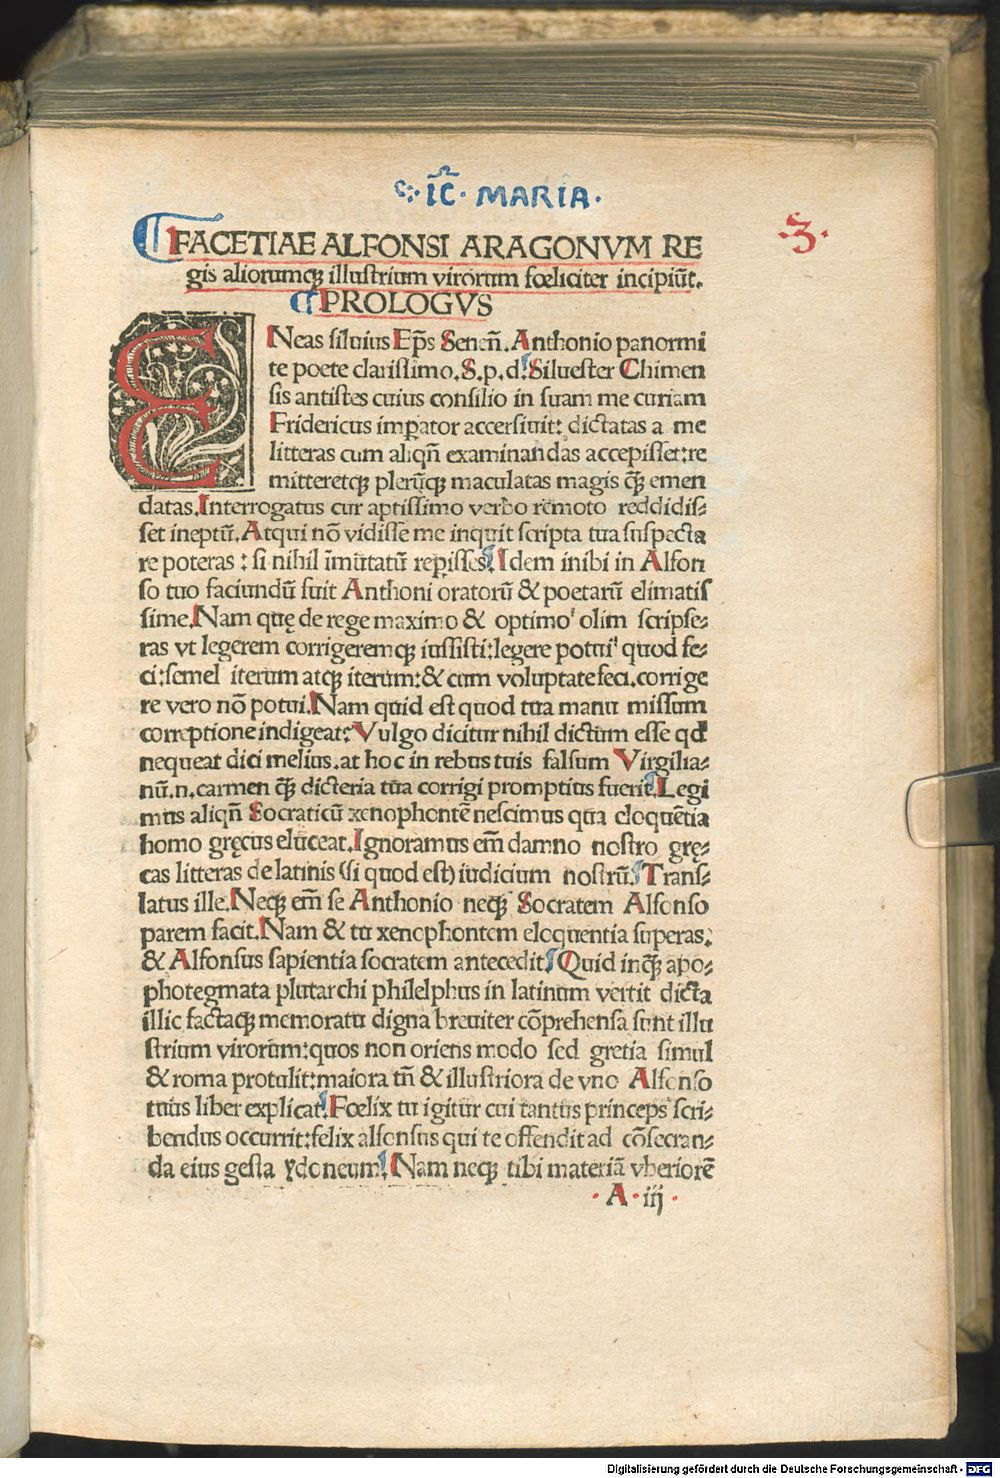 IC̄ · MARIA ·
·3·
FACETIAE ALFONSI ARAGONVM RE
gis aliorumqꝫ illustrium virorum fœliciter incipiūt.
PROLOGVS
ENeas siluius Ep̄s Senen̄. Anthonio panormi
te poete clarissimo. S. p. d. Siluester Chimen
sis antistes cuius consilio in suam me curiam
Fridericus imꝑator accersiuit: dictatas a me
litteras cum aliqn̄ examinandas accepisset: re
mitteretqꝫ plerūqꝫ maculatas magis qꝫ̄ emen
datas. Interrogatus cur aptissimo verbo remoto reddidis⸗
set ineptū. Atqui nō vidisse me inquit scripta tua suspecta
re poteras : si nihil īmutatū reꝑisses. Idem inibi in Alfon
so tuo faciundū fuit Anthoni oratorū & poetarū elimatis
sime. Nam quę de rege maximo & optimo olim scripse⸗
ras vt legerem corrigeremqꝫ iussisti: legere potui quod fe⸗
ci: semel iterum atqꝫ iterum: & cum voluptate feci. corrige
re vero nō potui. Nam quid est quod tua manu missum
correptione indigeat: Vulgo dicitur nihil dictum esse qd̄
nequeat dici melius. at hoc in rebus tuis falsum Virgilia⸗
nū .n. carmen qꝫ̄ dicteria tua corrigi promptius fuerit. Legi
mus aliqn̄ Socraticū xenophontē nescimus qua eloquētia
homo gręcus eluceat. Ignoramus em̄ damno nostro grę⸗
cas litteras de latinis (si quod est) iudicium nostrū. Trans⸗
latus ille. Neqꝫ em̄ se Anthonio neqꝫ Socratem Alfonso
parem facit. Nam & tu xenophontem eloquentia superas:
& Alfonsus sapientia socratem antecedit. Quid inqꝫ̄ apo⸗
photegmata plutarchi philelphus in latinum vertit dicta
illic factaqꝫ memoratu digna breuiter cōprehensa sunt illu
strium virorum: quos non oriens modo sed gretia simul
& roma protulit: maiora tn̄ & illustriora de vno Alfonso
tuus liber explicat. Fœlix tu igitur cui tantus princeps scri⸗
bendus occurrit: felix alfonsus qui te offendit ad cōsecran⸗
da eius gesta ydoneum. Nam neqꝫ tibi materiā vberiorē
· A · iij ·
Digitalisierung gefördert durch die Deutsche Forschungsgemeinschaft - DFG